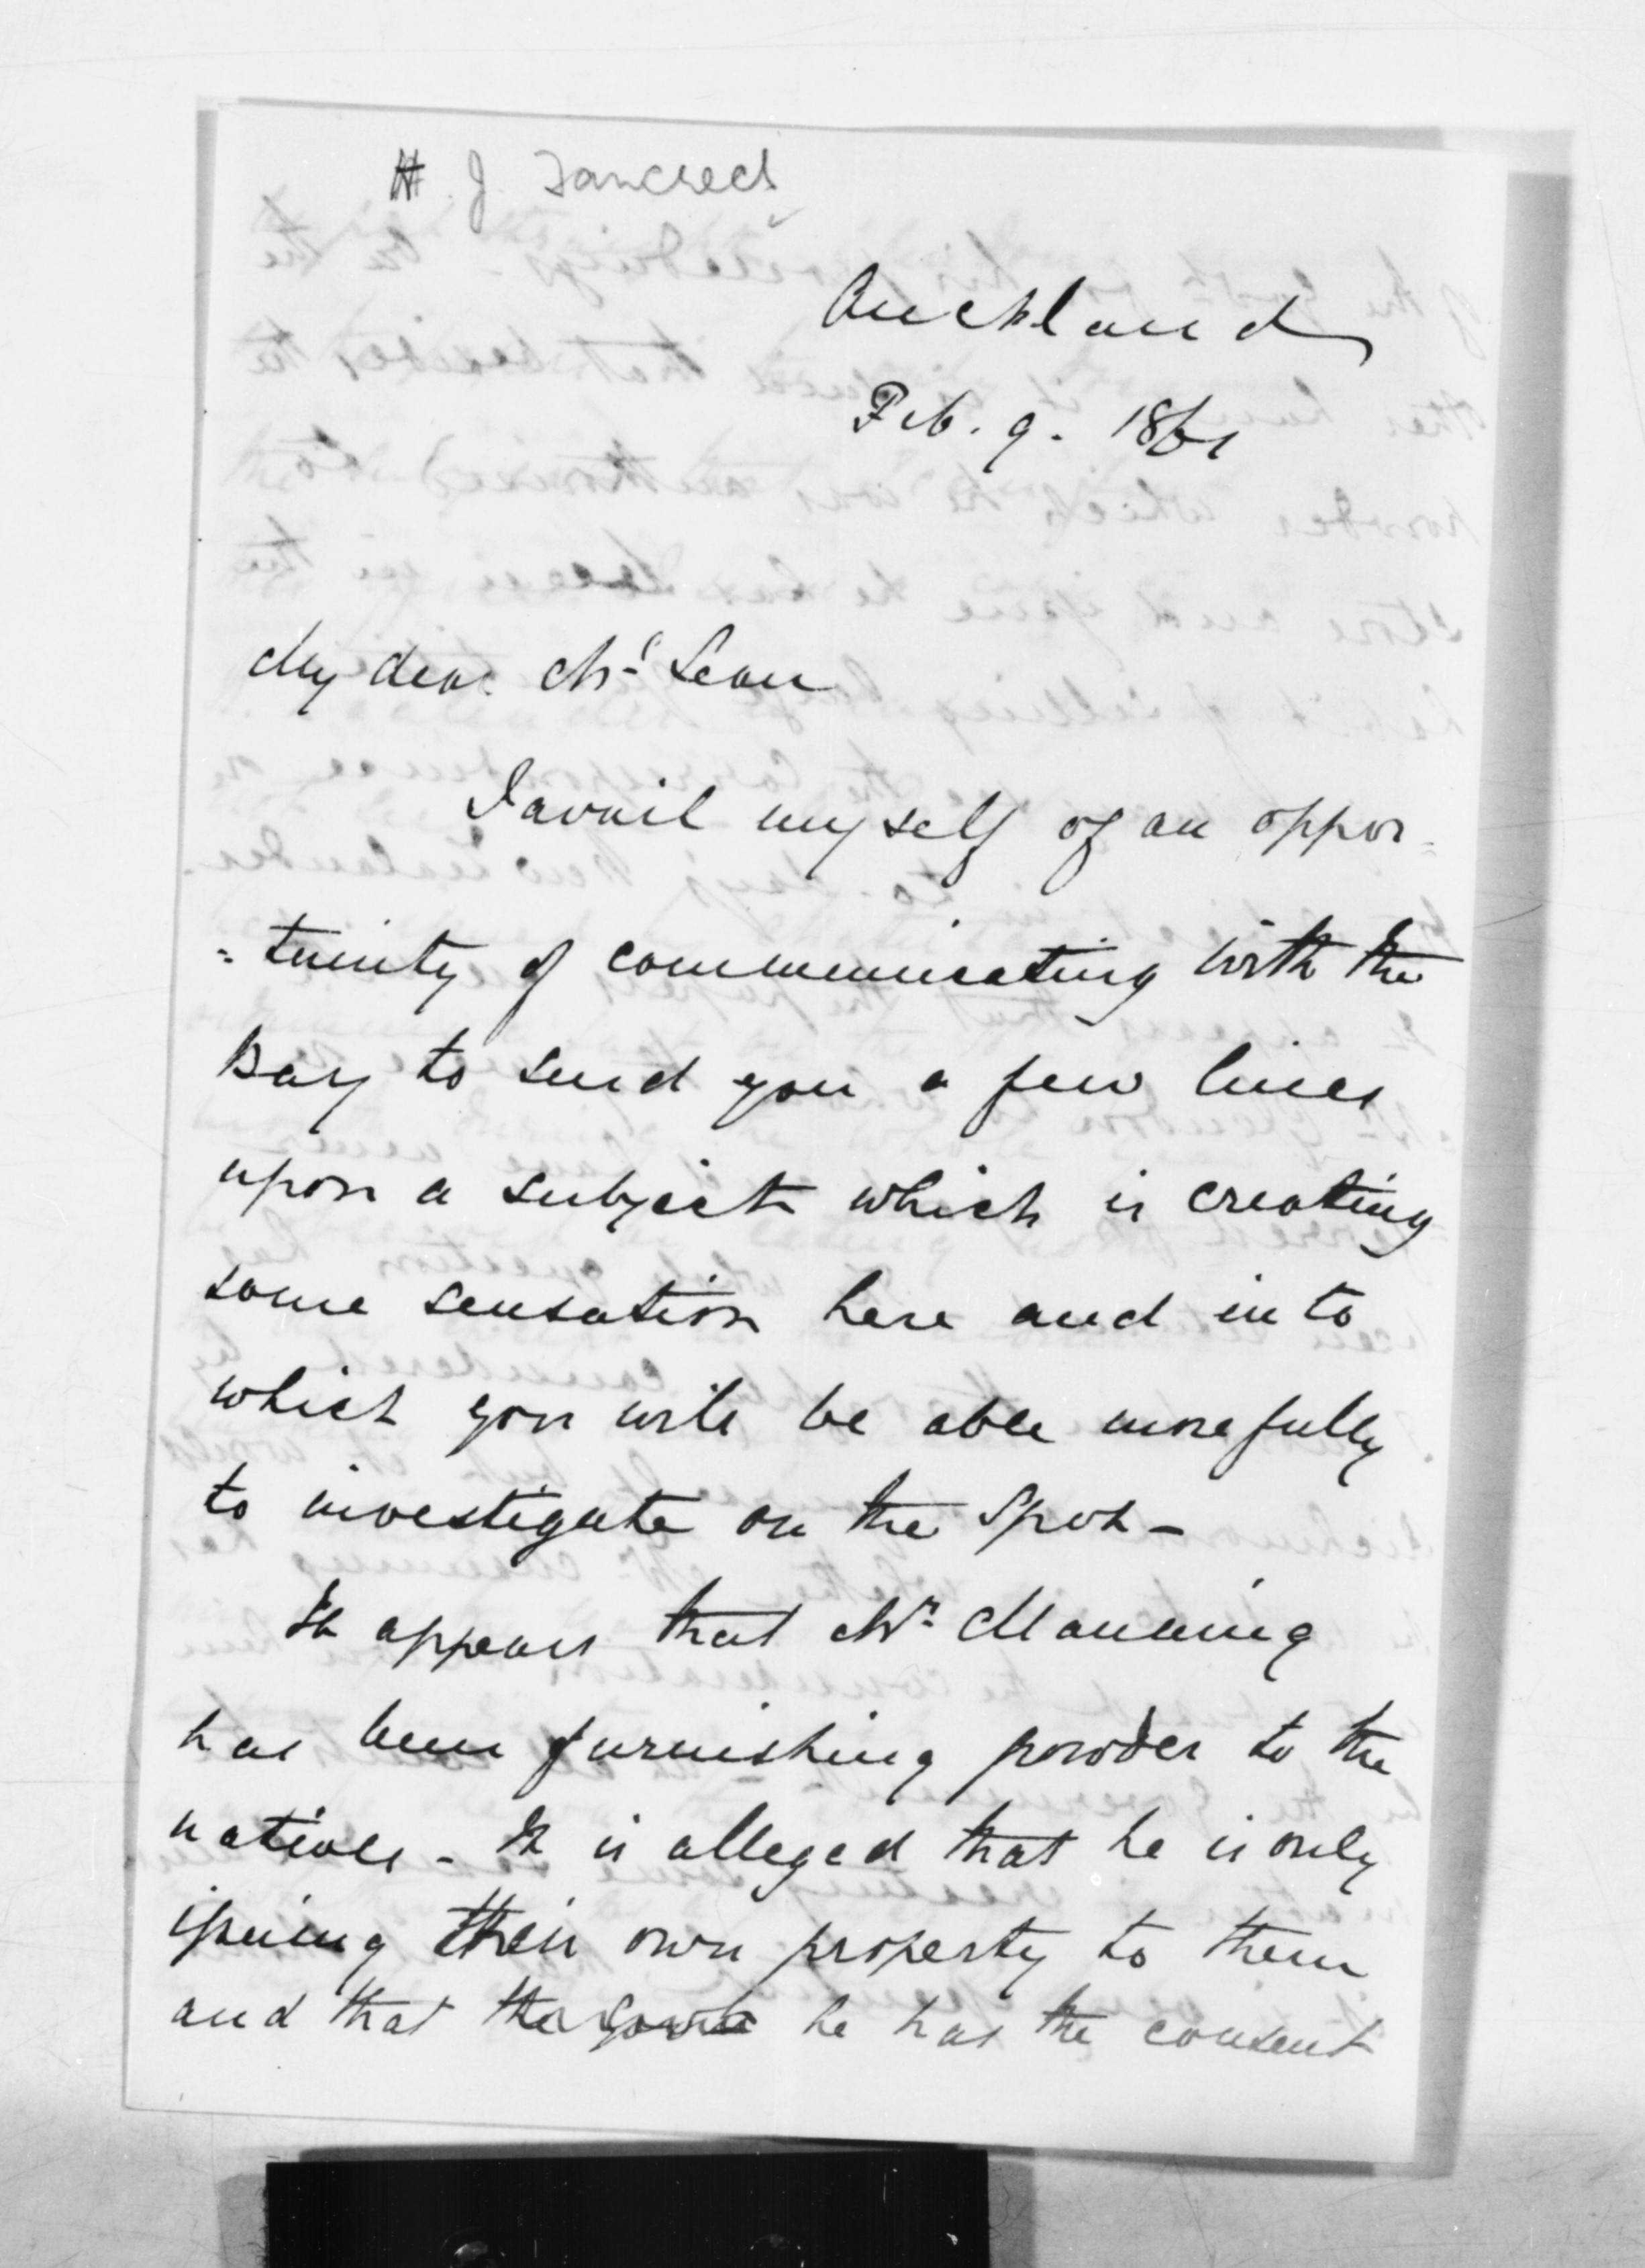 H. J. Tancred
Auckland
Feb. 9. 1861
My dear McLean
I avail myself of an oppor-
=tunity of communicating with the
Bay to send you a few lines
upon a subject which is creating
some sensation here and into
which you will be able more fully
to investigate on the spot -
It appears that Mr. Manning
has been furnishing powder to the
natives - It is alleged that he is only
issuing their own property to them
and that he has the consent